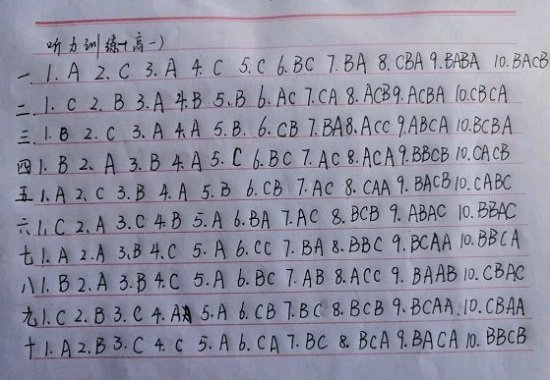 听力训练(高一)
一. 1. A 2. C 3. A 4. C 5. C 6. BC 7. BA 8. CBA 9. BABA 10. BACB
二. 1. C 2. B 3. A 4. B 5. B 6. AC 7. CA 8. ACB 9. ACBA 10. CBCA
三. 1. B 2. C 3. A 4. A 5. B. 6. CB 7. BA 8. ACC 9. ABCA 10. BCBA
四 1. B 2. A 3. B 4. A 5. C 6. BC 7. AC 8. ACA 9. BBCB 10. CACB
五 1. A 2. C 3. B 4. A 5. B 6. CB 7. AC 8. CAA 9. BACB 10. CABC
六 1. C 2. A 3. C 4. B 5. A 6. BA 7. AC 8. BCB 9. ABAC 10. BBAC
七 1. A 2. A 3. B 4. C 5. A 6. CC 7. BA 8. BBC 9. BCAA 10. BBCA
八 1. B 2. A 3. B 4. C 5. A 6. BC 7. AB 8. ACC 9. BAAB 10. CBAC
九 1. C 2. B 3. C 4. A 5. A 6. CB 7. BC 8. BCB 9. BCAA. 10. CBAA
十 1. A 2. B 3. C 4. C 5. A 6. CA 7. BC 8. BCA 9. BACA 10. BBCB